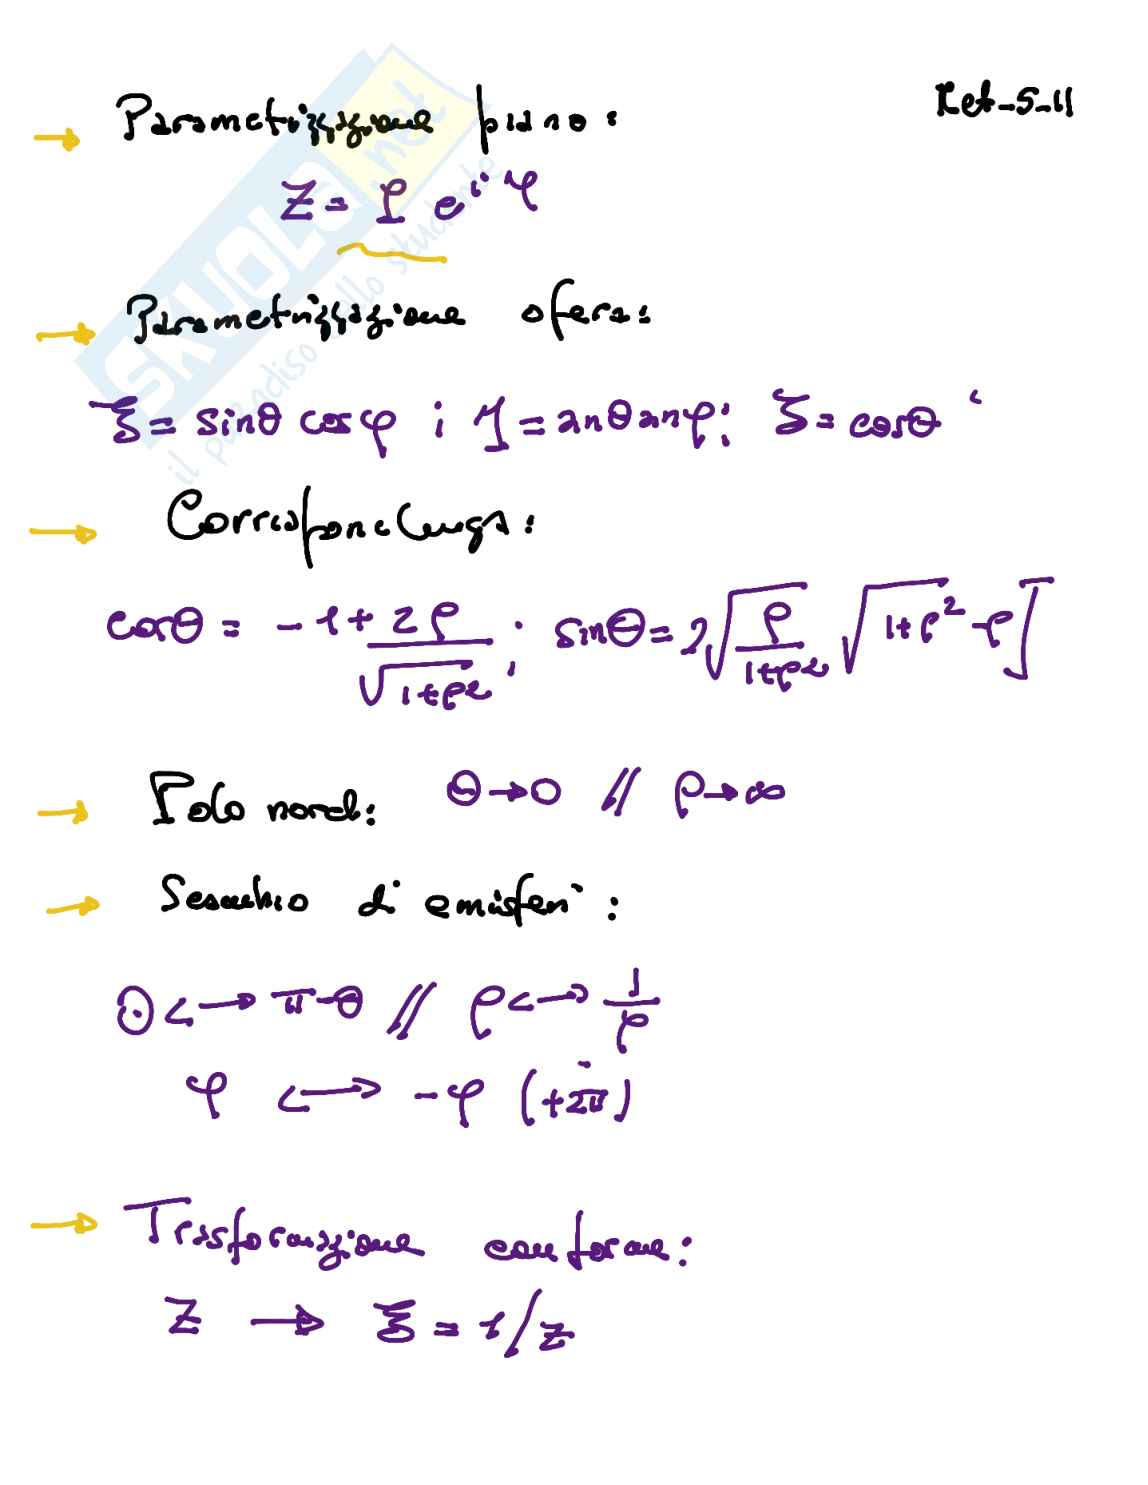 Let-5-11
→ Parametrizzazione piano:
Z = ρ e^{iφ}
→ Parametrizzazione sfera:
ξ = sinθ cosφ ; η = sinθ sinφ ; ζ = cosθ
→ Corrispondenza:
cosθ = -1 + 2ρ/√(1+ρ²) ; sinθ = 2√(ρ/(1+ρ²)) √(√(1+ρ²) - ρ)
→ Polo nord: θ → 0 // ρ → ∞
→ Scambio di emisferi:
θ ←→ π-θ // ρ ←→ 1/ρ
φ ←→ -φ (+2π)
→ Trasformazione conforme:
Z → ξ = 1/z
SKUOLA.net
il paradiso dello studente